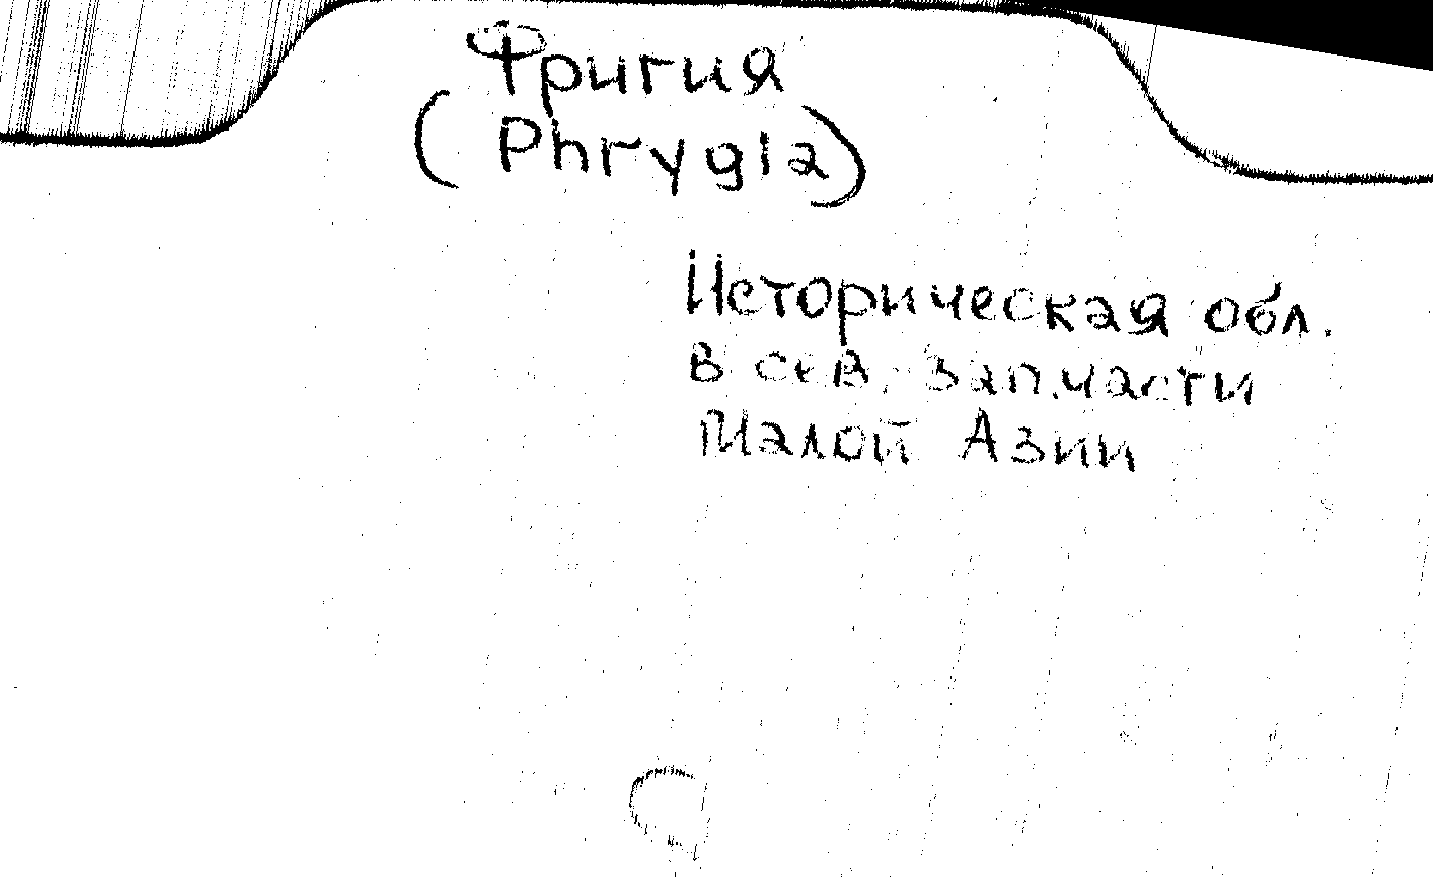 Фригия
(Phrygia)
Историческая обл.
в сев. зап. части
Малой Азии